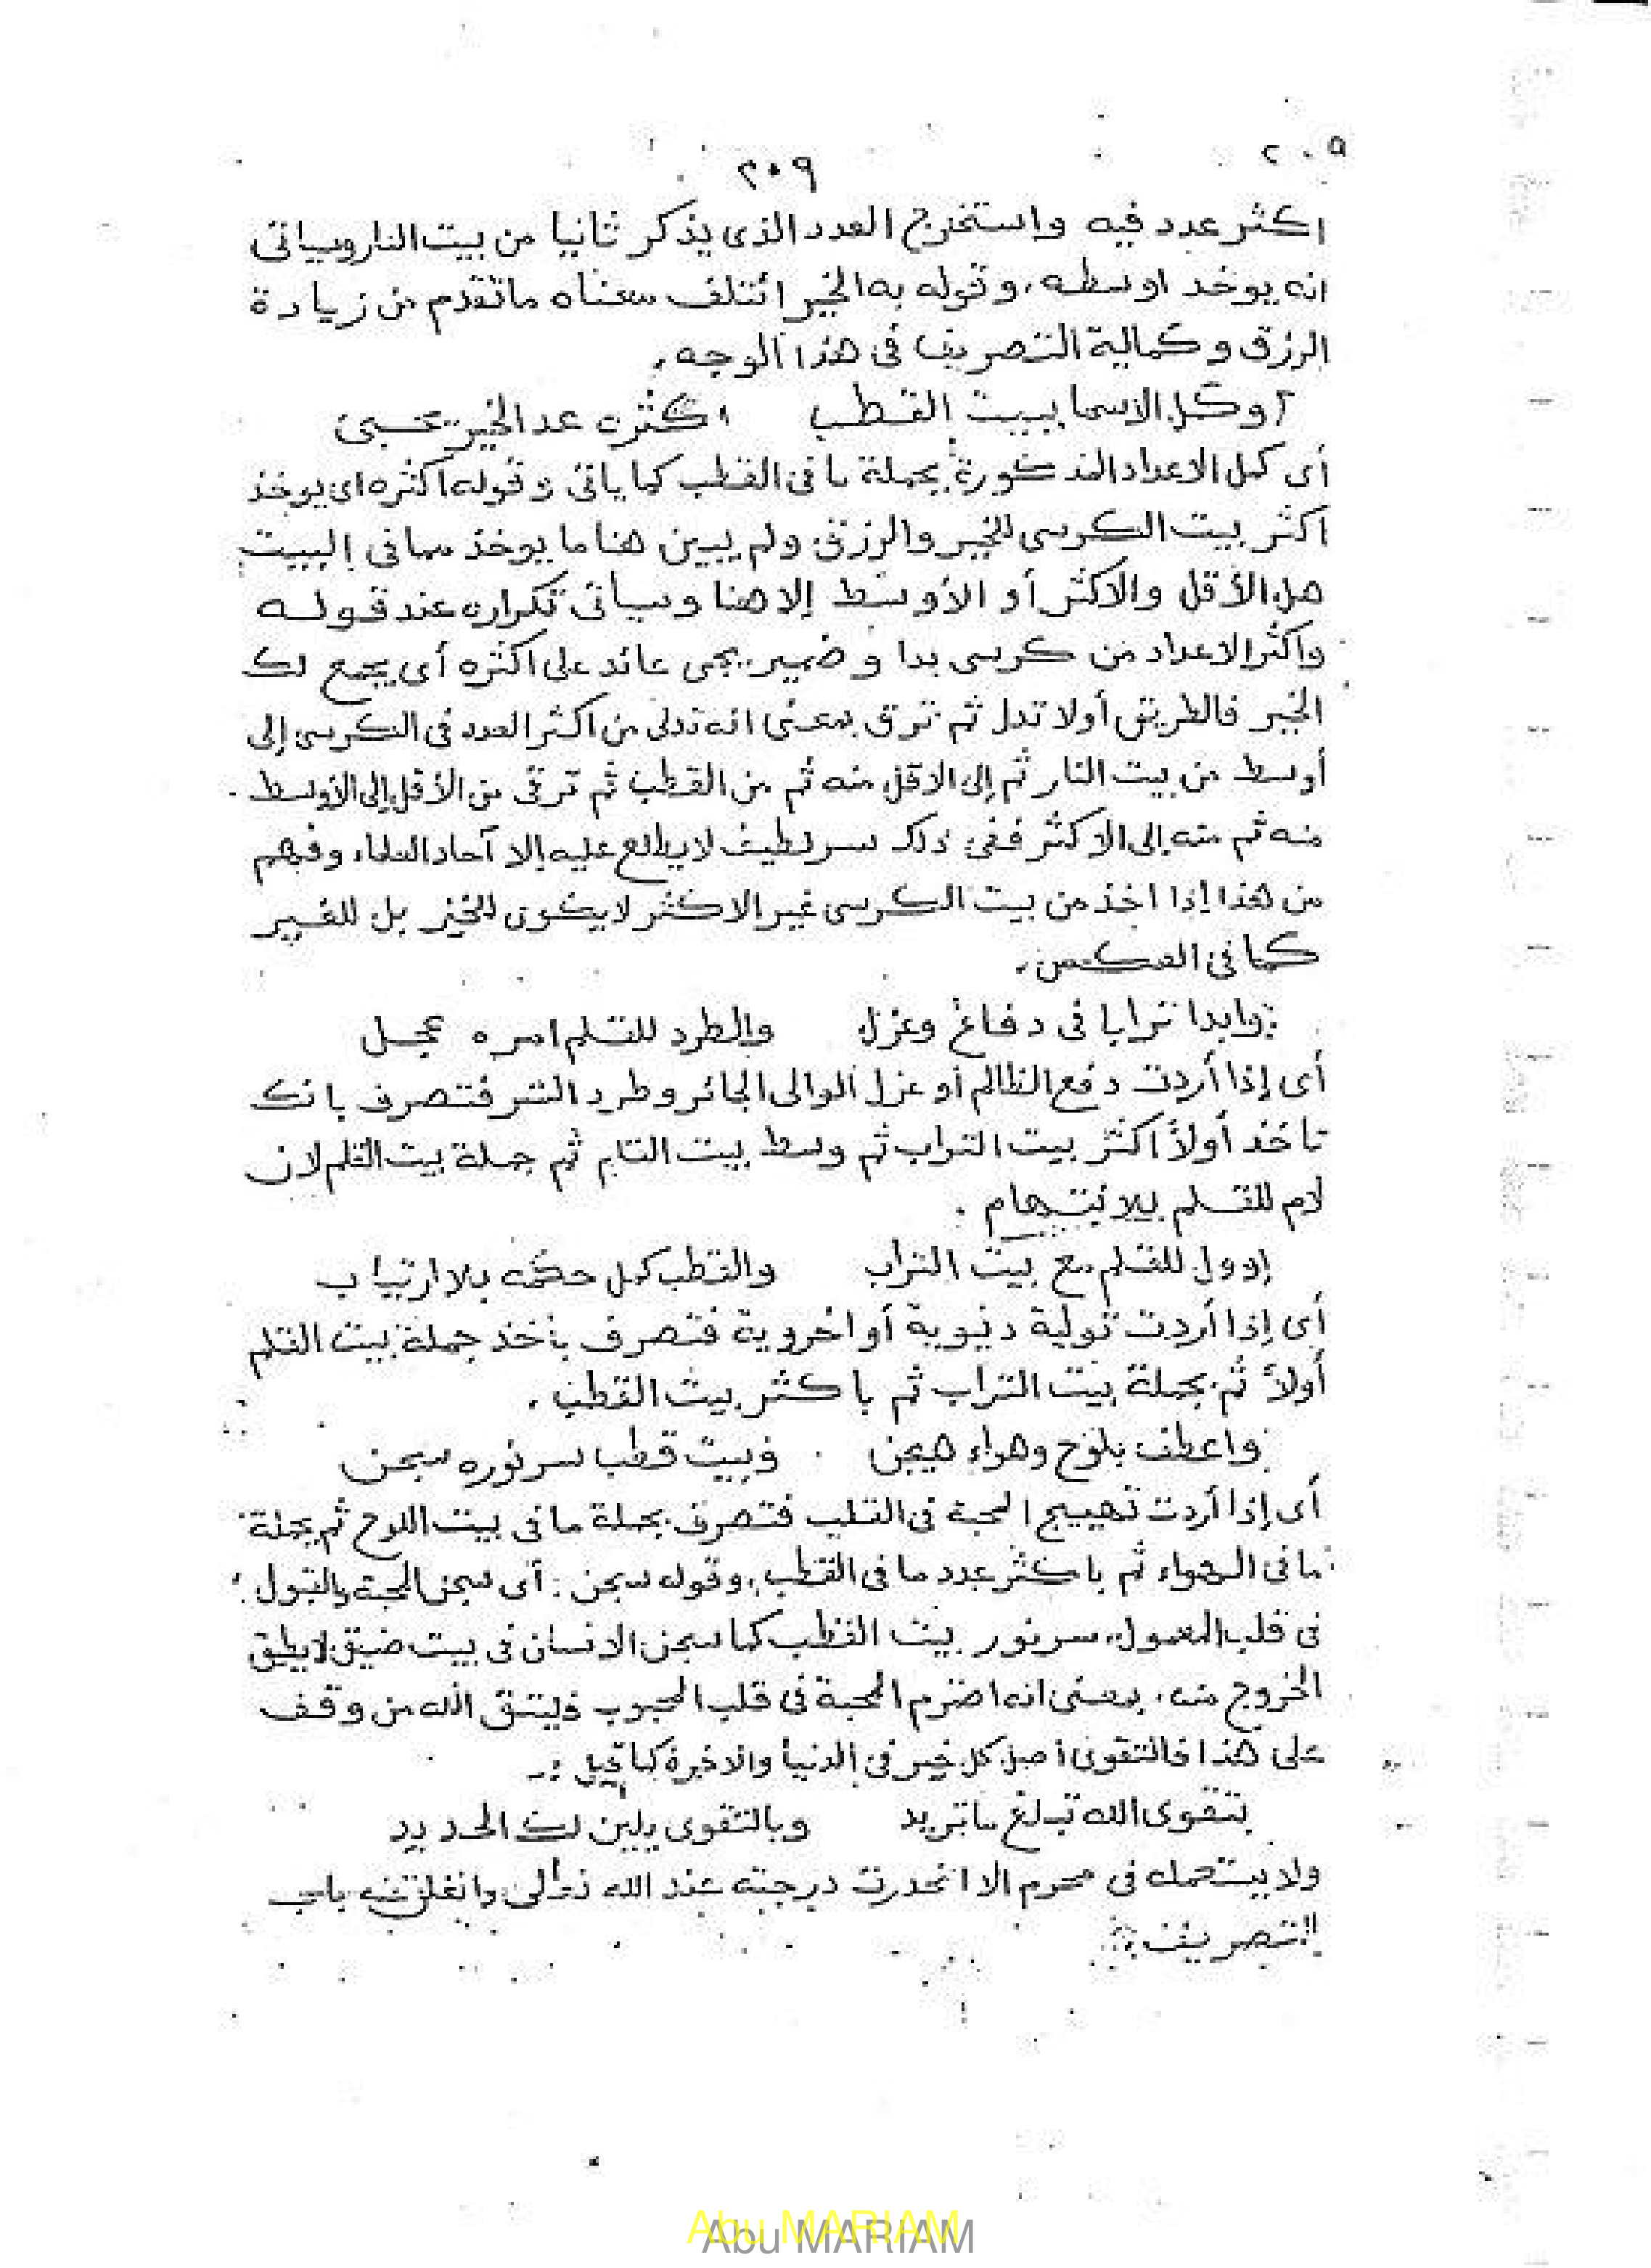 ٢٠٩
٢٠٩
اكثر عدد فيه واستخرج العدد الذى يذكر ثانيا من بيت النار وسياتى
انه يوخذ اوسطه، وقوله به الخير ائتلف معناه ماتقدم من زيادة
الرزق وكمالية التصريف فى هذا الوجه.
وكل الاسما ببيت القطب اكثره عد الخير يجبى
أى كمل الاعداد المذكورة بجملة ما فى القطب كما ياتى وقوله اكثره اى يوخذ
اكثر بيت الكرسى للخير والرزق ولم يبين هنا ما يوخذ مما فى البيت
هل الأقل والاكثر أو الأوسط إلا هنا وسيأتى تكراره عند قوله
واكثر الاعداد من كرسى بدا وضمير يجى عائد على اكثره أى يجمع لك
الخير فالطريق أولا تدل ثم ترق بمعنى انه تدلى من اكثر العدد فى الكرسى إلى
أوسط من بيت النار ثم إلى الاقل منه ثم من القطب ثم ترقى من الأقل إلى الأوسط
منه ثم منه إلى الاكثر ففى ذلك سر لطيف لايطلع عليه إلا آحاد العلماء وفهم
من هذا إذا اخذ من بيت الكرسى غير الاكثر لايكون للخير بل للغير
كما فى العكس.
وابدا ترابا فى دفاع وعزل والطرد للقلم امره عجل
أى إذا أردت دفع الظالم أو عزل الوالى الجائر وطرد الشر فتصرف بانك
تاخذ أولاً اكثر بيت التراب ثم وسط بيت القلم ثم جملة بيت القلم لان
لام للقلم بلا انبهام.
وول للقلم مع بيت التراب والقطب كمل حكمه بلا ارتياب
أى إذا أردت تولية دنيوية أو اخروية فتصرف بأخذ جملة بيت القلم
أولاً ثم بجملة بيت التراب ثم باكثر بيت القطب.
واعطف بلوح وهواء هيجن وبيت قطب سر نوره سجن
أى إذا أردت تهييج المحبة فى القلب فتصرف بجملة ما فى بيت اللوح ثم بجملة
ما فى الهواء ثم باكثر عدد ما فى القطب، وقوله سجن: أى سجن المحبة والقبول
فى قلب المعمول، سر نور بيت القطب كما سجن الانسان فى بيت ضيق لايطيق
الخروج منه، بمعنى انه اضرم المحبة فى قلب المحبوب وليتق الله من وقف
على هذا فالتقوى أصل كل خير فى الدنيا والاخرة كما قيل:
بتقوى الله تبلغ ماتريد وبالتقوى يلين لك الحديد
ولايستعمله فى محرم الا انحدرت درجته عند الله تعالى وانغلق عنه باب
التصريف
Abu MARIAM